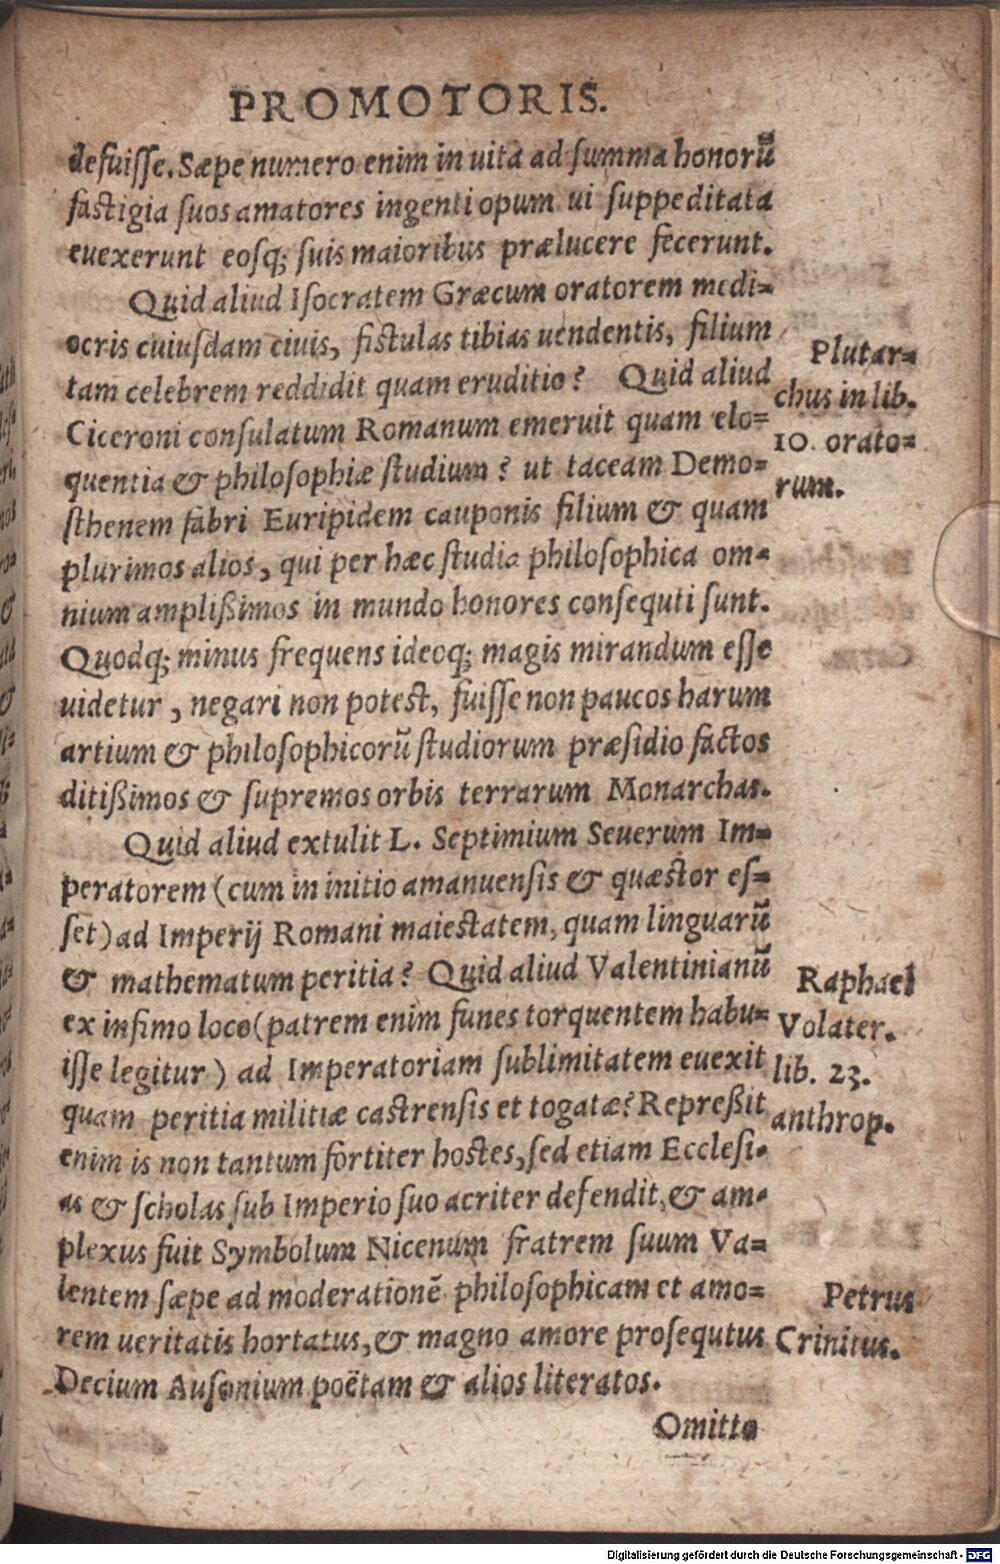 PROMOTORIS.
defuiſſe. Sæpe numero enim in uita ad ſumma honorũ
faſtigia ſuos amatores ingenti opum ui ſuppeditata
euexerunt eoſq; ſuis maioribus prælucere fecerunt.
Quid aliud Iſocratem Græcum oratorem medi=
ocris cuiuſdam ciuis, fiſtulas tibias uendentis, filium
tam celebrem reddidit quam eruditio? Quid aliud
Ciceroni conſulatum Romanum emeruit quam elo=
quentia & philoſophiæ ſtudium? ut taceam Demo=
ſthenem fabri Euripidem cauponis filium & quam
plurimos alios, qui per hæc ſtudia philoſophica om=
nium ampliſſimos in mundo honores conſequti ſunt.
Quodq; minus frequens ideoq; magis mirandum eſſe
uidetur, negari non poteſt, fuiſſe non paucos harum
artium & philoſophicorũ ſtudiorum præſidio factos
ditißimos & ſupremos orbis terrarum Monarchas.
Quid aliud extulit L. Septimium Seuerum Im=
peratorem (cum in initio amanuenſis & quæſtor eſ=
ſet) ad Imperij Romani maieſtatem, quam linguarũ
& mathematum peritia? Quid aliud Valentinianũ
ex infimo loco (patrem enim funes torquentem habu=
iſſe legitur) ad Imperatoriam ſublimitatem euexit
quam peritia militiæ caſtrenſis et togatæ? Repreßit
enim is non tantum fortiter hoſtes, ſed etiam Eccleſi=
as & ſcholas ſub Imperio ſuo acriter defendit, & am=
plexus fuit Symbolum Nicenum fratrem ſuum Va=
lentem ſæpe ad moderationẽ philoſophicam et amo=
rem ueritatis hortatus, & magno amore proſequtus
Decium Auſonium poëtam & alios literatos.
Omitto
Plutar=
chus in lib.
10. orato=
rum.
Raphael
Volater.
lib. 23.
anthrop.
Petrus
Crinitus.
Digitalisierung gefördert durch die Deutsche Forschungsgemeinschaft - DFG